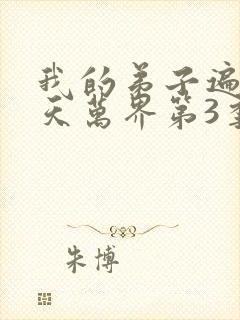 我的弟子遍
天萬界第3季
朱博